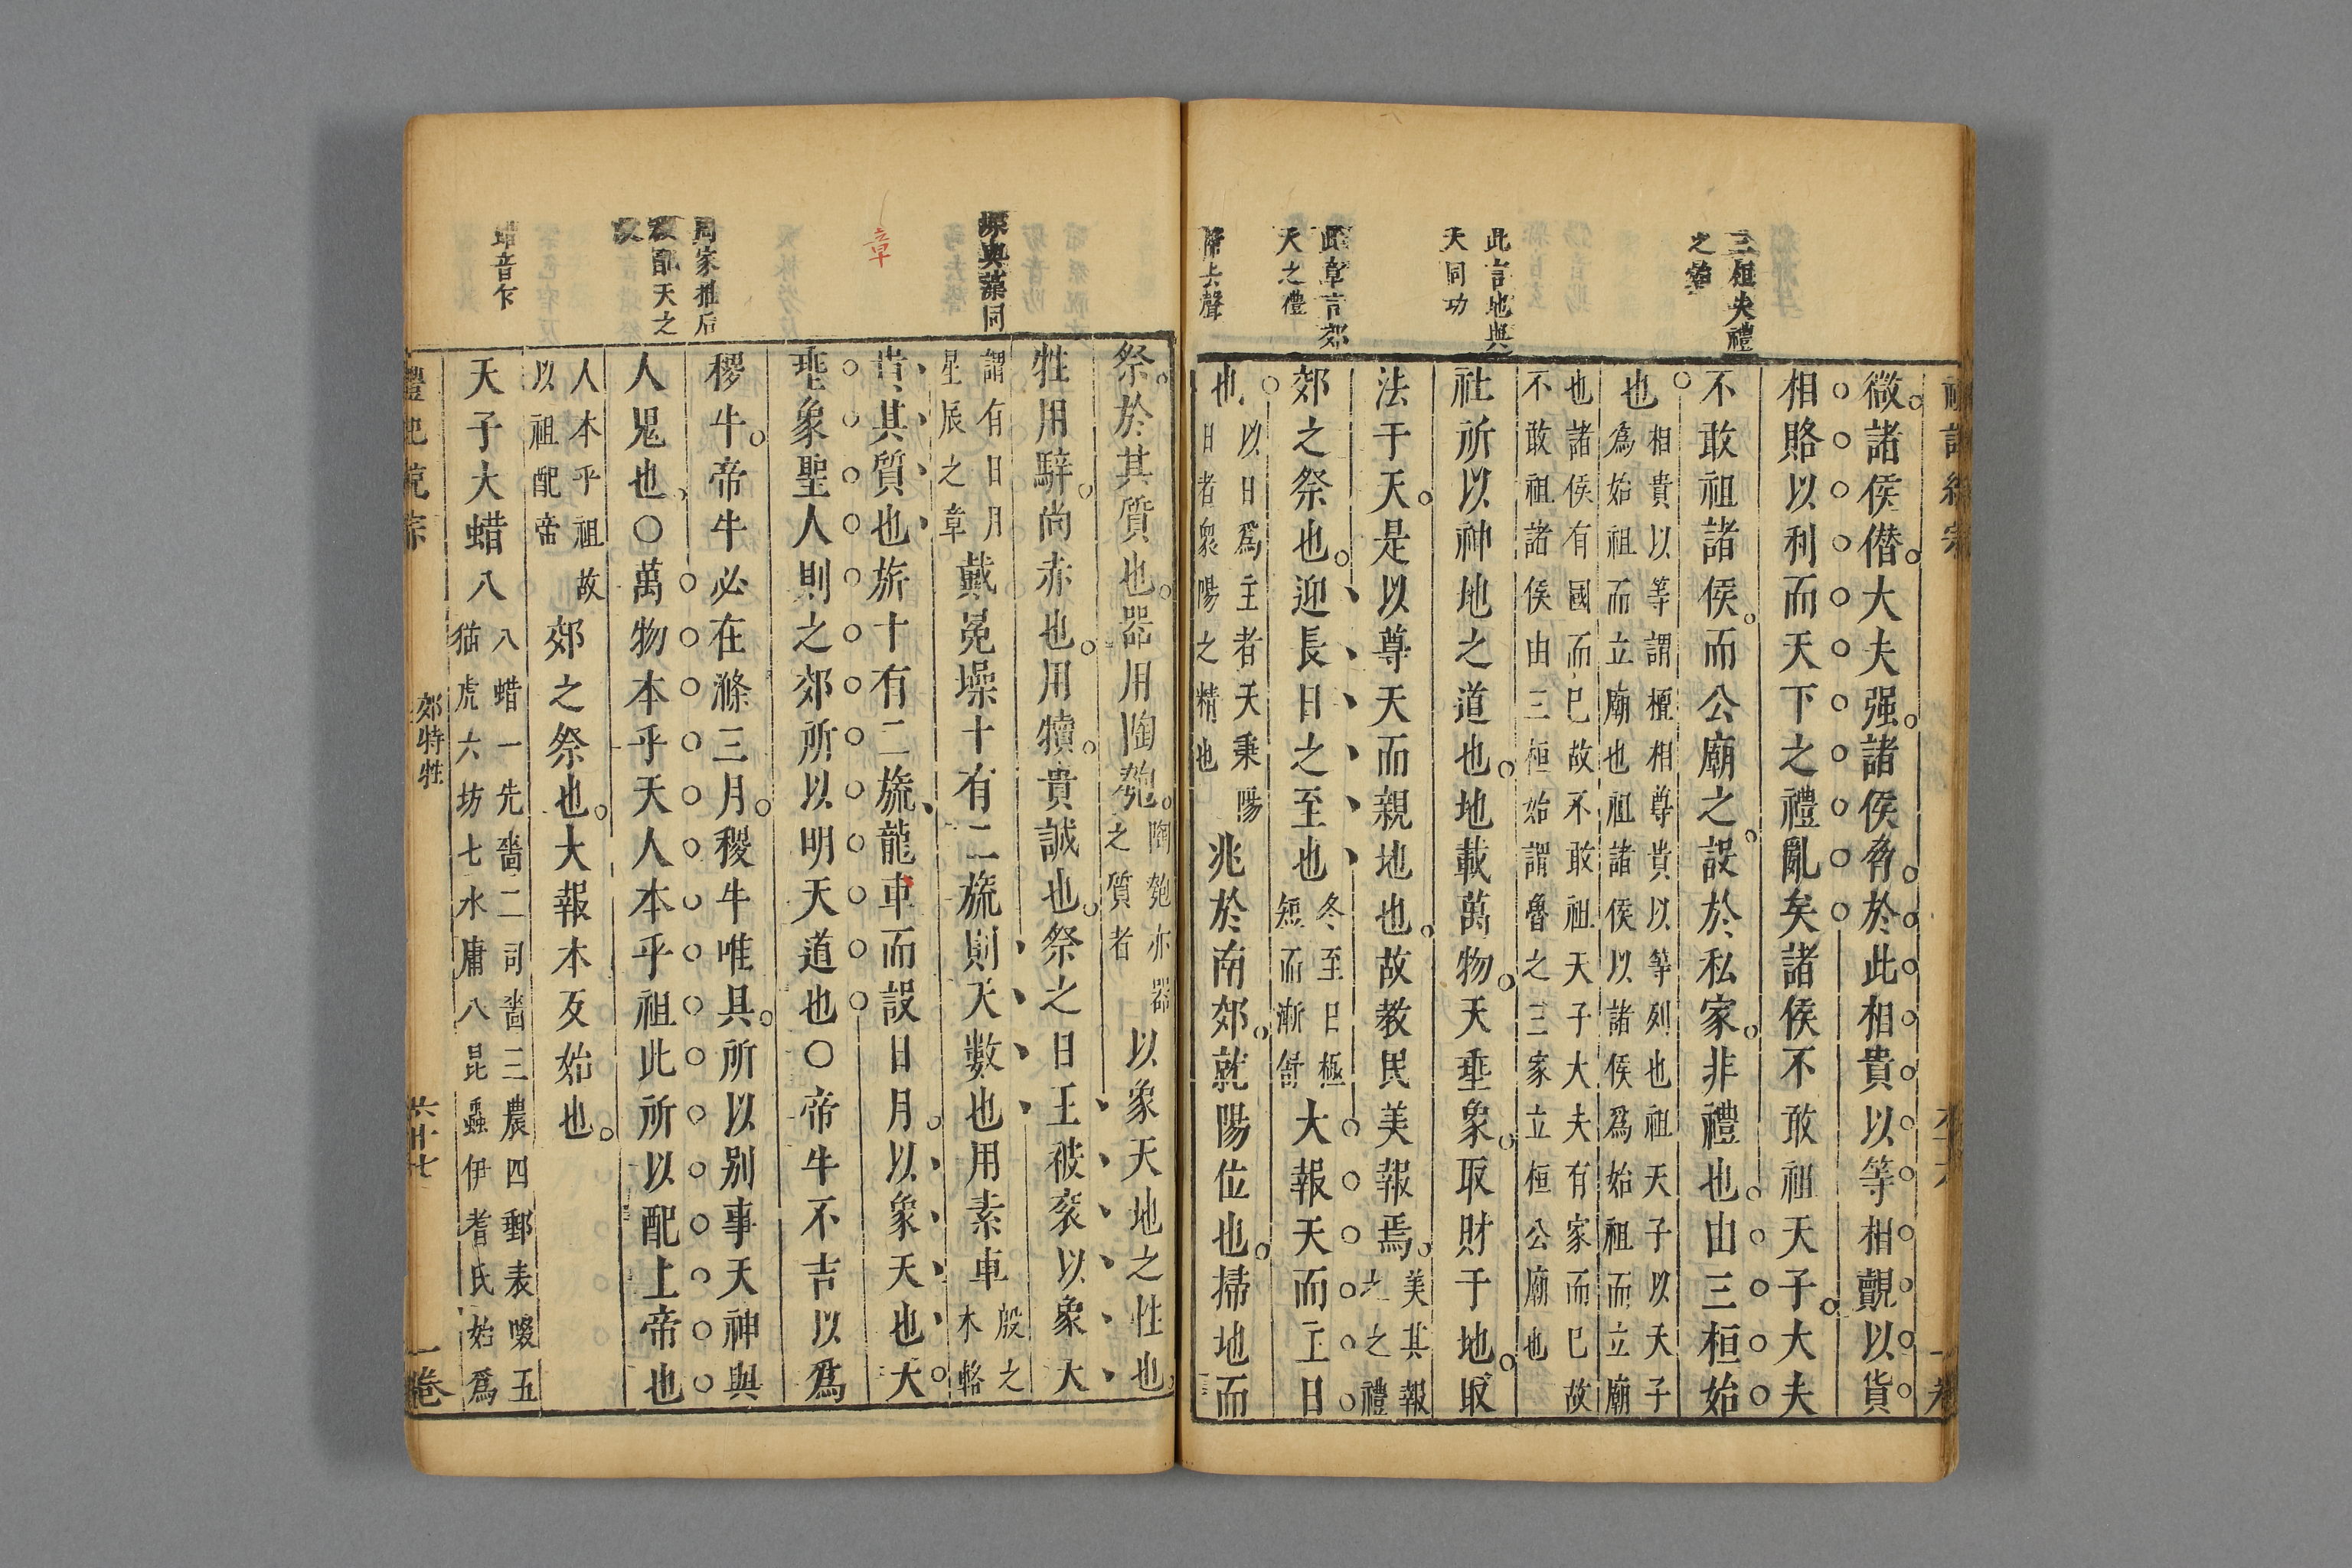 三桓失禮
之
此言地與
天同功
此章言郊
天之禮
掃去聲
微諸侯僭大夫强諸侯脅於此相貴以等相覿以貨
相賂以利而天下之禮亂矣諸侯不敢祖天子大夫
不敢祖諸侯而公廟之設於私家非禮也由三桓始
也
相貴以等謂擅相尊貴以等列也祖天子以天子
爲始祖而立廟也祖諸侯以諸侯爲始祖而立廟
也諸侯有國而已故不敢祖天子大夫有家而已故
不敢祖諸侯由三桓始謂魯之三家立桓公廟也
社所以神地之道也地載萬物天垂象取財于地取
法于天是以尊天而親地也故教民美報焉
美其報
之之禮
郊之祭也迎長日之至也
冬至日極
短而漸舒
大報天而主日
也
以日爲主者天秉陽
日者衆陽之精也
兆於南郊就陽位也掃地而
璪與藻同
章
周家推后
稷配天之
蜡音乍
祭於其質也器用陶匏
陶匏亦器
之質者
以象天地之性也
牲用騂尚赤也用犢貴誠也祭之日王被衮以象天
謂有日月
星辰之章
戴冕璪十有二旒則天數也用素車
殷之
木輅
貴其質也旂十有二旒龍車而設日月以象天也大
垂象聖人則之郊所以明天道也○帝牛不吉以爲
稷牛帝牛必在滌三月稷牛唯具所以别事天神與
人鬼也○萬物本乎天人本乎祖此所以配上帝也
人本乎祖故
以祖配帝
郊之祭也大報本反始也
天子大蜡八
八蜡一先嗇二司嗇三農四郵表畷五
猫虎六坊七水庸八昆蟲伊耆氏始爲
郊特牲
六十七
一卷